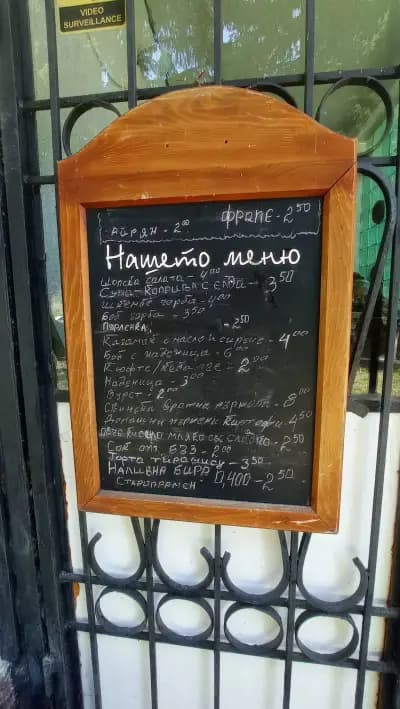 VIDEO
SURVEILLANCE
АЙРЯН - 2⁰⁰ ФРАПЕ - 2⁵⁰
Нашето меню
Шопска салата - 4⁰⁰
Супа - КОПРИВА С ЕЛДА - 3⁵⁰
Шкембе чорба - 4⁰⁰
Боб чорба - 3⁵⁰
Пърленка, - 2⁵⁰
Качамак с масло и сирене - 4⁰⁰
Боб с наденица - 6⁰⁰
Кюфте/Кебапче - 2⁰⁰
Наденица - 3⁰⁰
Вурст - 2⁰⁰
Свинска вратна пържола - 8⁰⁰
Домашни пържени картофи 4⁵⁰
кисело мляко със сладко - 2⁵⁰
Сок от БЪЗ - 2⁰⁰
Торта тирамису - 3⁵⁰
НАЛИВНА БИРА 0,400 - 2⁵⁰
Старопрамен